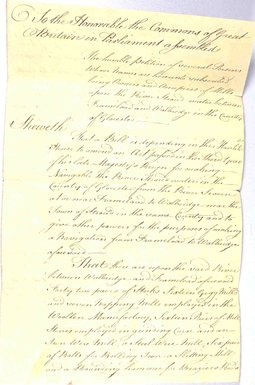 To the Honorable the Commons of Great
Britain in Parliament assembled
The humble Petition of several Persons
whose Names are hereunto subscribed
being Owners and Occupiers of Mills
upon the River Stroud water between
Framiload and Wallbridge in the County
of Glocester
Sheweth
That a Bill is depending in this Honble
House to amend an Act passed in the Third Year
of his late Majesty's Reign for making
Navigable the River Stroud water in the
County of Glocester from the River Severn
at or near Framiload to Wallbridge near the
Town of Stroud in the same County and to
give other powers for the purpose of making
a Navigation from Framiload to Wallbridge
aforesaid
That there are upon the said River
between Wallbridge and Framiload aforesaid
Forty two pairs of Stocks Sixteen Gigg Mills
and seven Mills employed in the
Woollen Manufactory, Sixteen Pairs of Mill
Stones employed in grinding Corn and an
Iron Wire Mill, a Steel Wire Mill, Six pair
of Rolls for Rolling Iron a Slitting Mill
and a